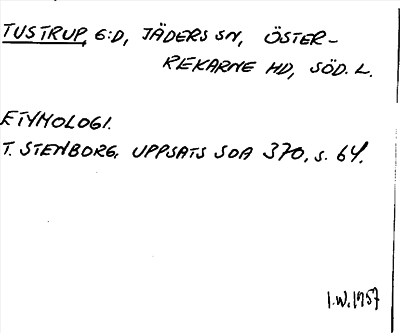 TUSTRUP, G:D, JÄDERS SN, ÖSTER-
REKARNE HD, SÖD. L.
ETYMOLOGI.
T. STENBORG, UPPSATS SOA 370, s. 64.
I.W. 1957